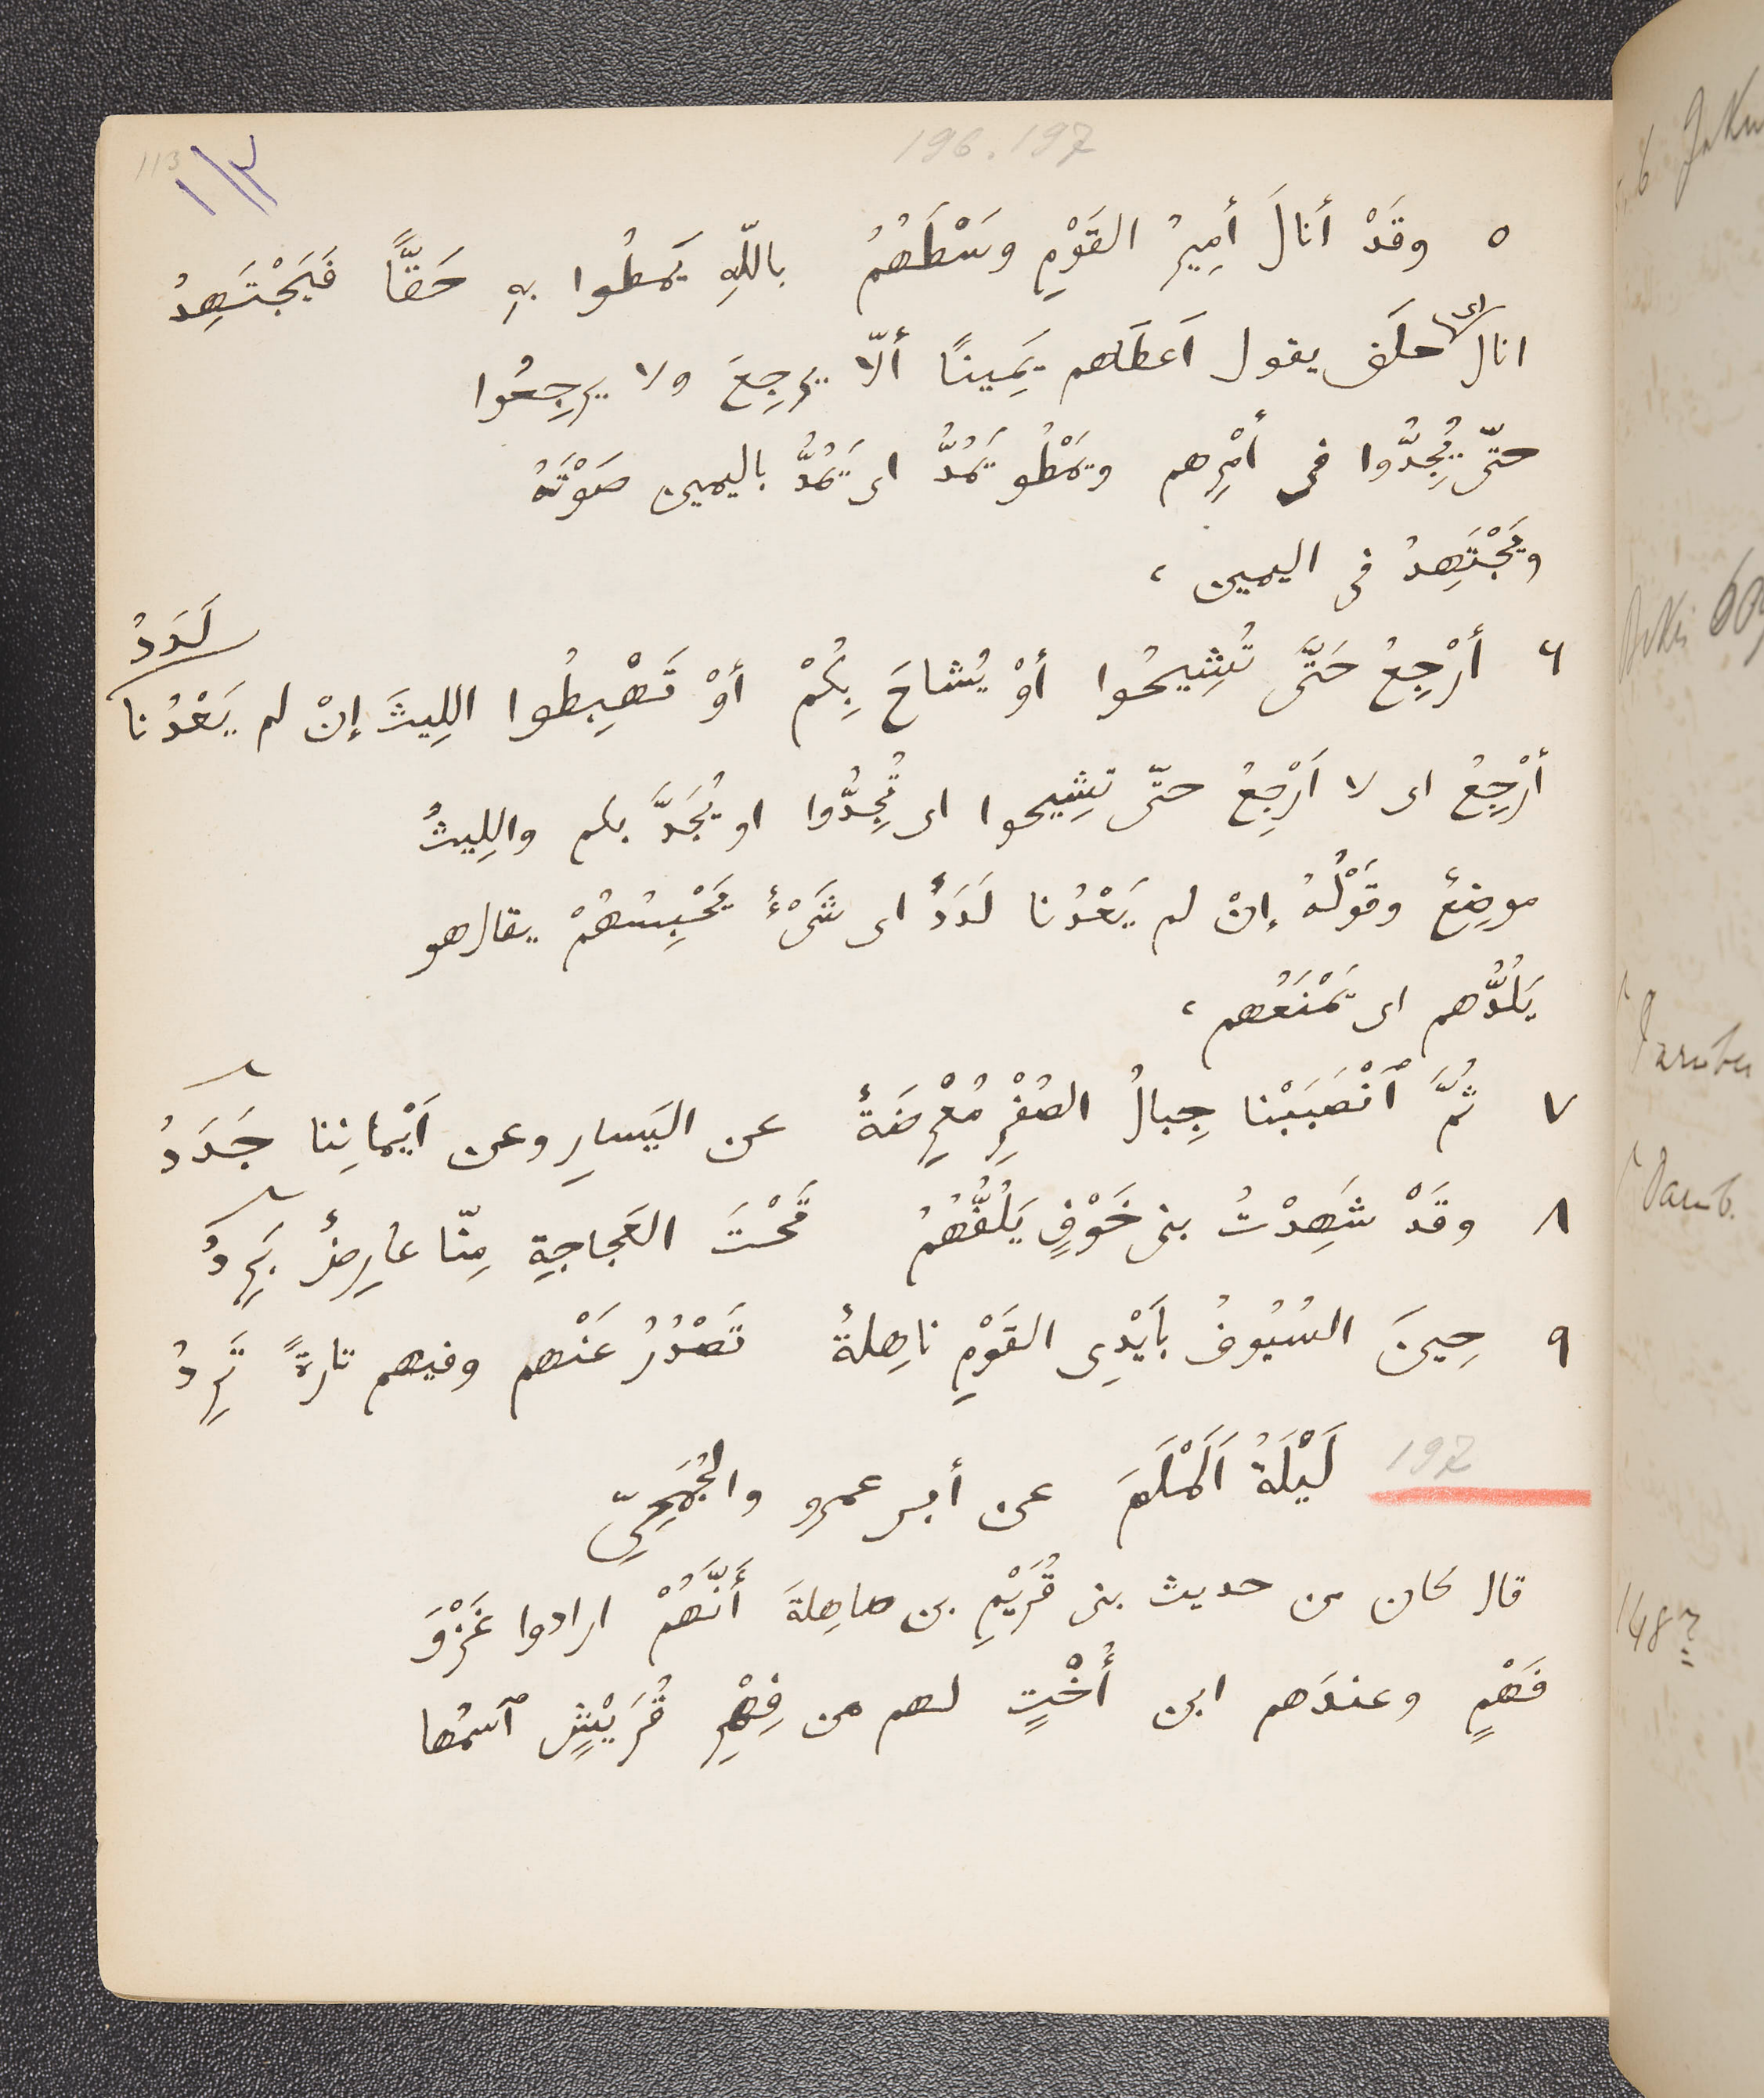 113
١١٣
196. 197
٥ وقَدْ أنالَ أَمِيرُ القَوْمِ وسْطَهُمُ باللّهِ يَمطُوا بهِ حَقًّا فَيَجْتَهِدُ
انال اى حلَف يقول اَعطَاهم يَمِينًا أَلّا يرجِعَ ولا يرجِعُوا
حتّى يُجِدُّوا فى أَمْرِهم ويَمْطُو يَمُدُّ اى يَمُدُّ باليمين صَوْتَهُ
ويَجْتَهِدُ فى اليمين ،
٦ أرْجِعُ حَتَّى تُشِيحُوا أوْ يُشاحَ بِكُمْ أَوْ تَهْبِطُوا اللِيثَ إنْ لم يَعْدُنا لَدَدُ
أرْجِعُ اى لا اَرْجِعُ حتّى تشِيحوا اى تُجِدُّوا او يُجَدَّ بكم والليثُ
موضِعٌ وقَوْلُهُ إنْ لم يَعْدُنا لَدَدٌ اى شَىْءٌ يَحْبِسُهُمْ يقال هو
يَلُدُّهم اى يَمْنَعُهم ،
٧ ثُمَّ ٱنْصَبَبْنا جِبالُ الصُفْرِ مُعْرِضَةٌ عن اليَسارِ وعن اَيْمانِنا جَدَدُ
٨ وقَدْ شَهِدْتُ بنى خَوْفٍ يَلُفُّهُمُ تَحْتَ العَجاجةِ مِنّا عارِضٌ بَرِدُ
٩ حِينَ السُيُوفُ بأَيْدِى القَوْمِ ناهِلةٌ تَصْدُرُ عَنْهم وفيهم تارةً تَرِدُ
197 لَيْلَةُ اَلَمْلَمَ عن أبى عمرو والجُمَحِىِّ
قال كان من حديث بنى قُرَيْمِ بن صاهِلةَ أَنَّهُمْ ارادوا غَزْوَ
فَهْمٍ وعندَهم ابن أُخْتٍ لهم من فِهْرِ قُرَيْشٍ ٱسمُها